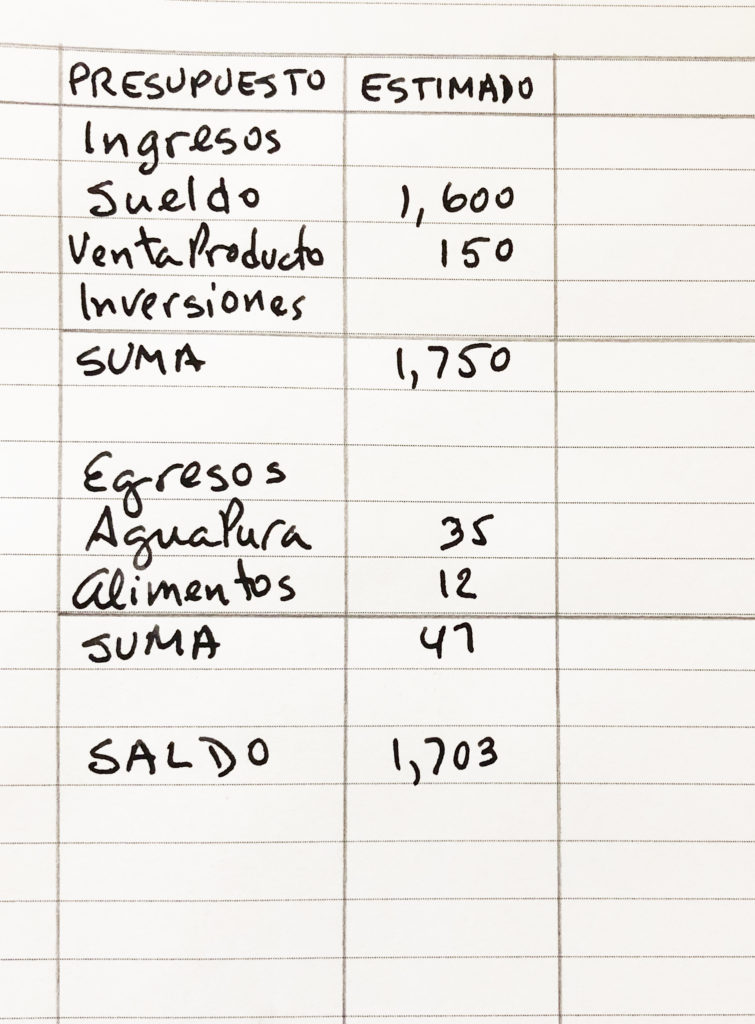 PRESUPUESTO ESTIMADO
Ingresos
Sueldo 1,600
Venta Producto 150
Inversiones
SUMA 1,750
Egresos
Agua Pura 35
Alimentos 12
SUMA 47
SALDO 1,703